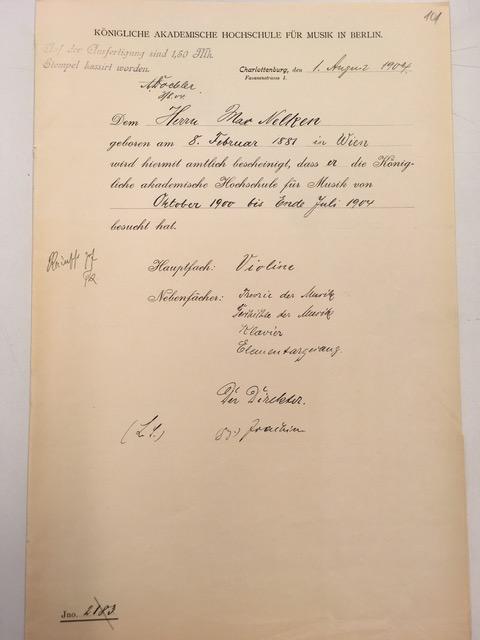 101
KÖNIGLICHE AKADEMISCHE HOCHSCHULE FÜR MUSIK IN BERLIN.
Auf der Ausfertigung sind 1,50 Mk.
Stempel kassirt worden.
Charlottenburg, den 1. August 1904.
Fasanenstrasse 1.
Dem Herrn Max Nelken
geboren am 8. Februar 1881 in Wien
wird hiermit amtlich bescheinigt, dass er die König-
liche akademische Hochschule für Musik von
Oktober 1900 bis Ende Juli 1904
besucht hat.
Hauptfach: Violine
Nebenfächer: Theorie der Musik
der Musik
Klavier
Elementargesang.
Der Direktor.
(L. S.) gz.) Joachim
Jno. 2183.